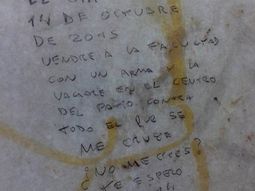 EL DIA
14 DE OCTUBRE
DE 2015
VENDRE A LA FACULTAD
CON UN ARMA Y LA
VACIARE EN EL CENTRO
DEL PATIO CONTRA
TODO EL QUE SE
ME CRUZE
¿NO ME CREES?
TE ESPERO